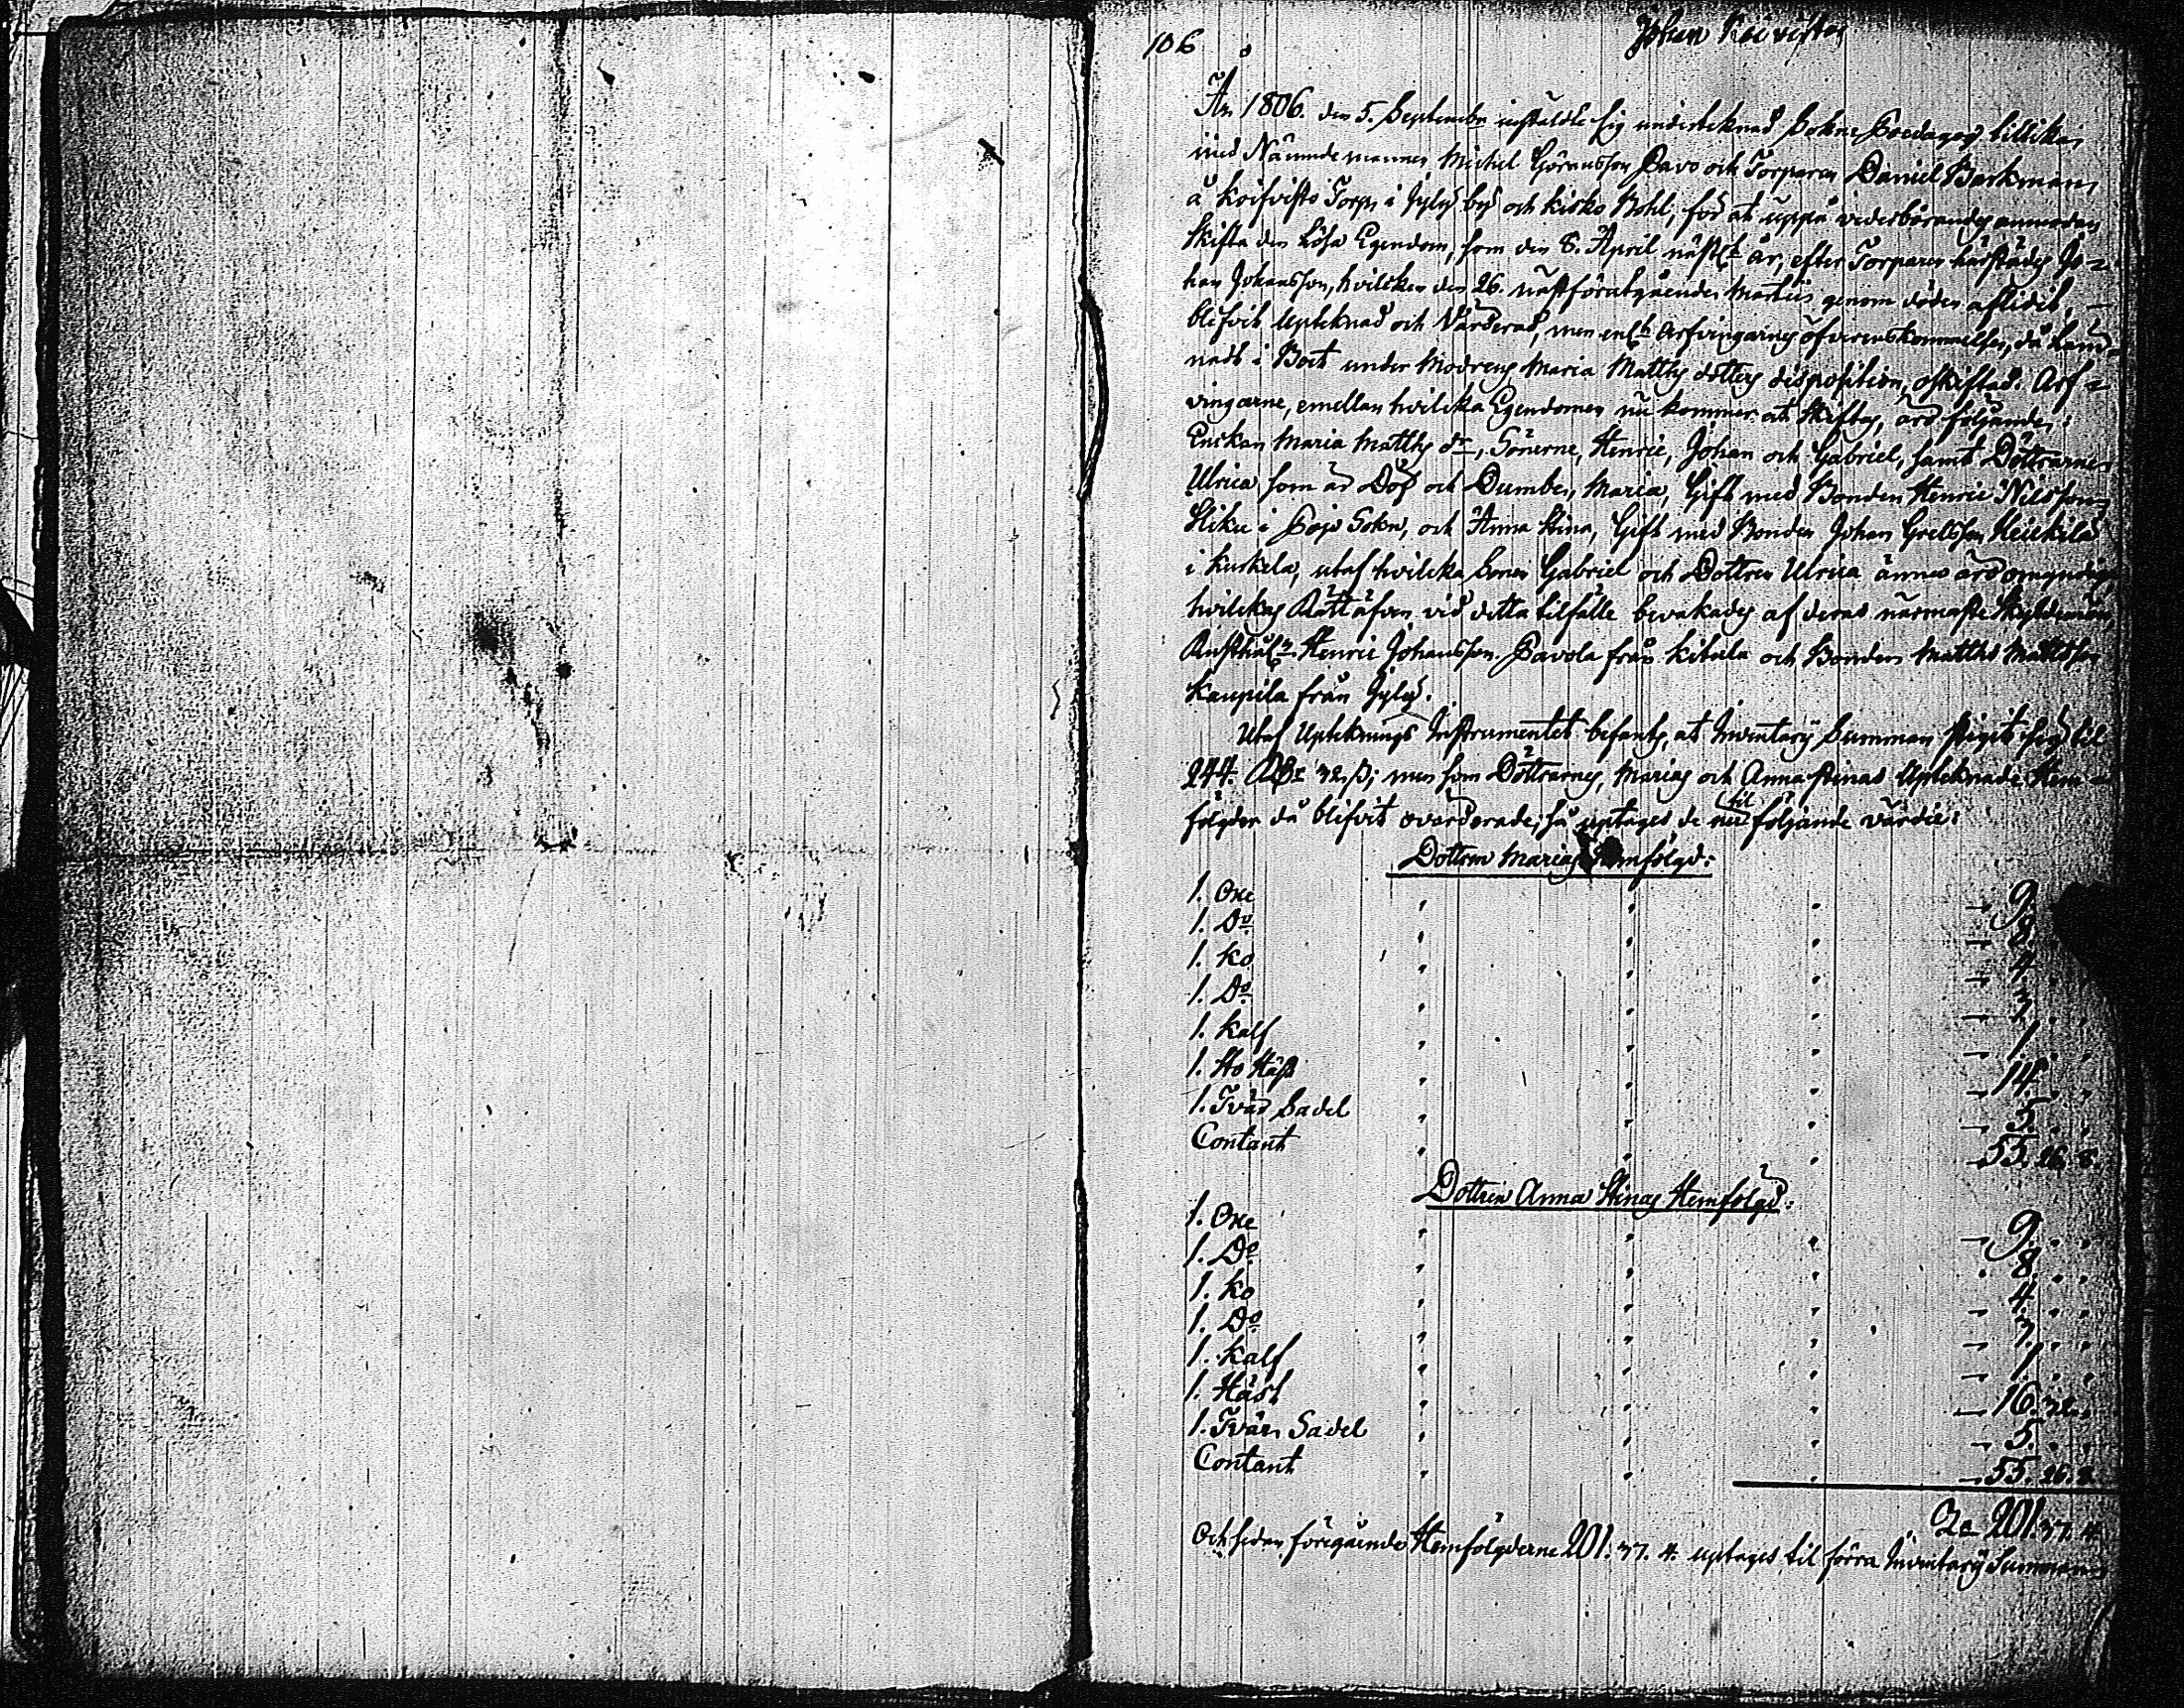 106
Johan Koivisto
År 1806. den 5. September instälde sig undertecknad Sokne Foedagog tillika
med Nämndemannen Michel Göransson Pavo och Torparen Daniel Barkman
å Koifvisto Torp i Jyly by och Kisko Bohl, för at uppå vederbörandes anmodan
skifta den Lösa Egendom, som den 8. April näst. år, efter Torparen härstädes Jo=
han Johansson, hvilken den 26. nästföregående Martii genom döden aflidit,
blifvit Upteknad och Värderad, men enl. Arfvingarnes öfverenskommelse, då läm=
nadt i Boet under Modrens Maria Matths dotters disposition, oskiftad. Arf=
vingarne, emellan hvilka Egendomen nu kommer at skiftas, äro följande:
Enckan Maria Matths dr, Sönerne, Henric, Johan och Gabriel, samt Döttrarne
Ulrica, som är Döf och Dumbe, Maria, Gift med Bonden Henric Nilsson
Sliku i Pojo Sokn, och Anna Stina, Gift med Bonden Johan Grelsson Heickilä
i Kurkela, utaf hvilka Sonen Gabriel och Dottren Ulrica ännu äro omyndige
hvilkas Rätt äfven vid detta tilfälle bevakades af deras närmaste Skyldemän
Rusthål. Henric Johansson Pavola från Kitula och Bonden Matths Mattsson
Kaupila från Jyly.
Utaf Uptecknings Instrumentet befants, at Inventarii Summan stigit sig til
244 RDr 32 ß; men som Döttrarnes, Marias och Anna Stinas Upteknade Hem=
fölgder då blifvit ovärderade; så uptages de nu til följande värde:
Dottren Marias Hemfölgd:
1. Oxe 9.
1. Do 8.
1. Ko 4.
1. Do 3.
1. Kalf 1.
1. Sto Häst 14.
1. Tvär Sadel 5.
Contant 55. 26. 8.
Dottren Anna Stinas Hemfölgd:
1. Oxe 9.
1. Do 8.
1. Ko 4.
1. Do 3.
1. Kalf 1.
1. Häst 16. 32.
1. Tvär Sadel 5.
Contant 55. 26. 8.
201. 37. 4.
Och sedan föregående Hemfölgderne 201. 37. 4. uptages til förra Inventarii Summan